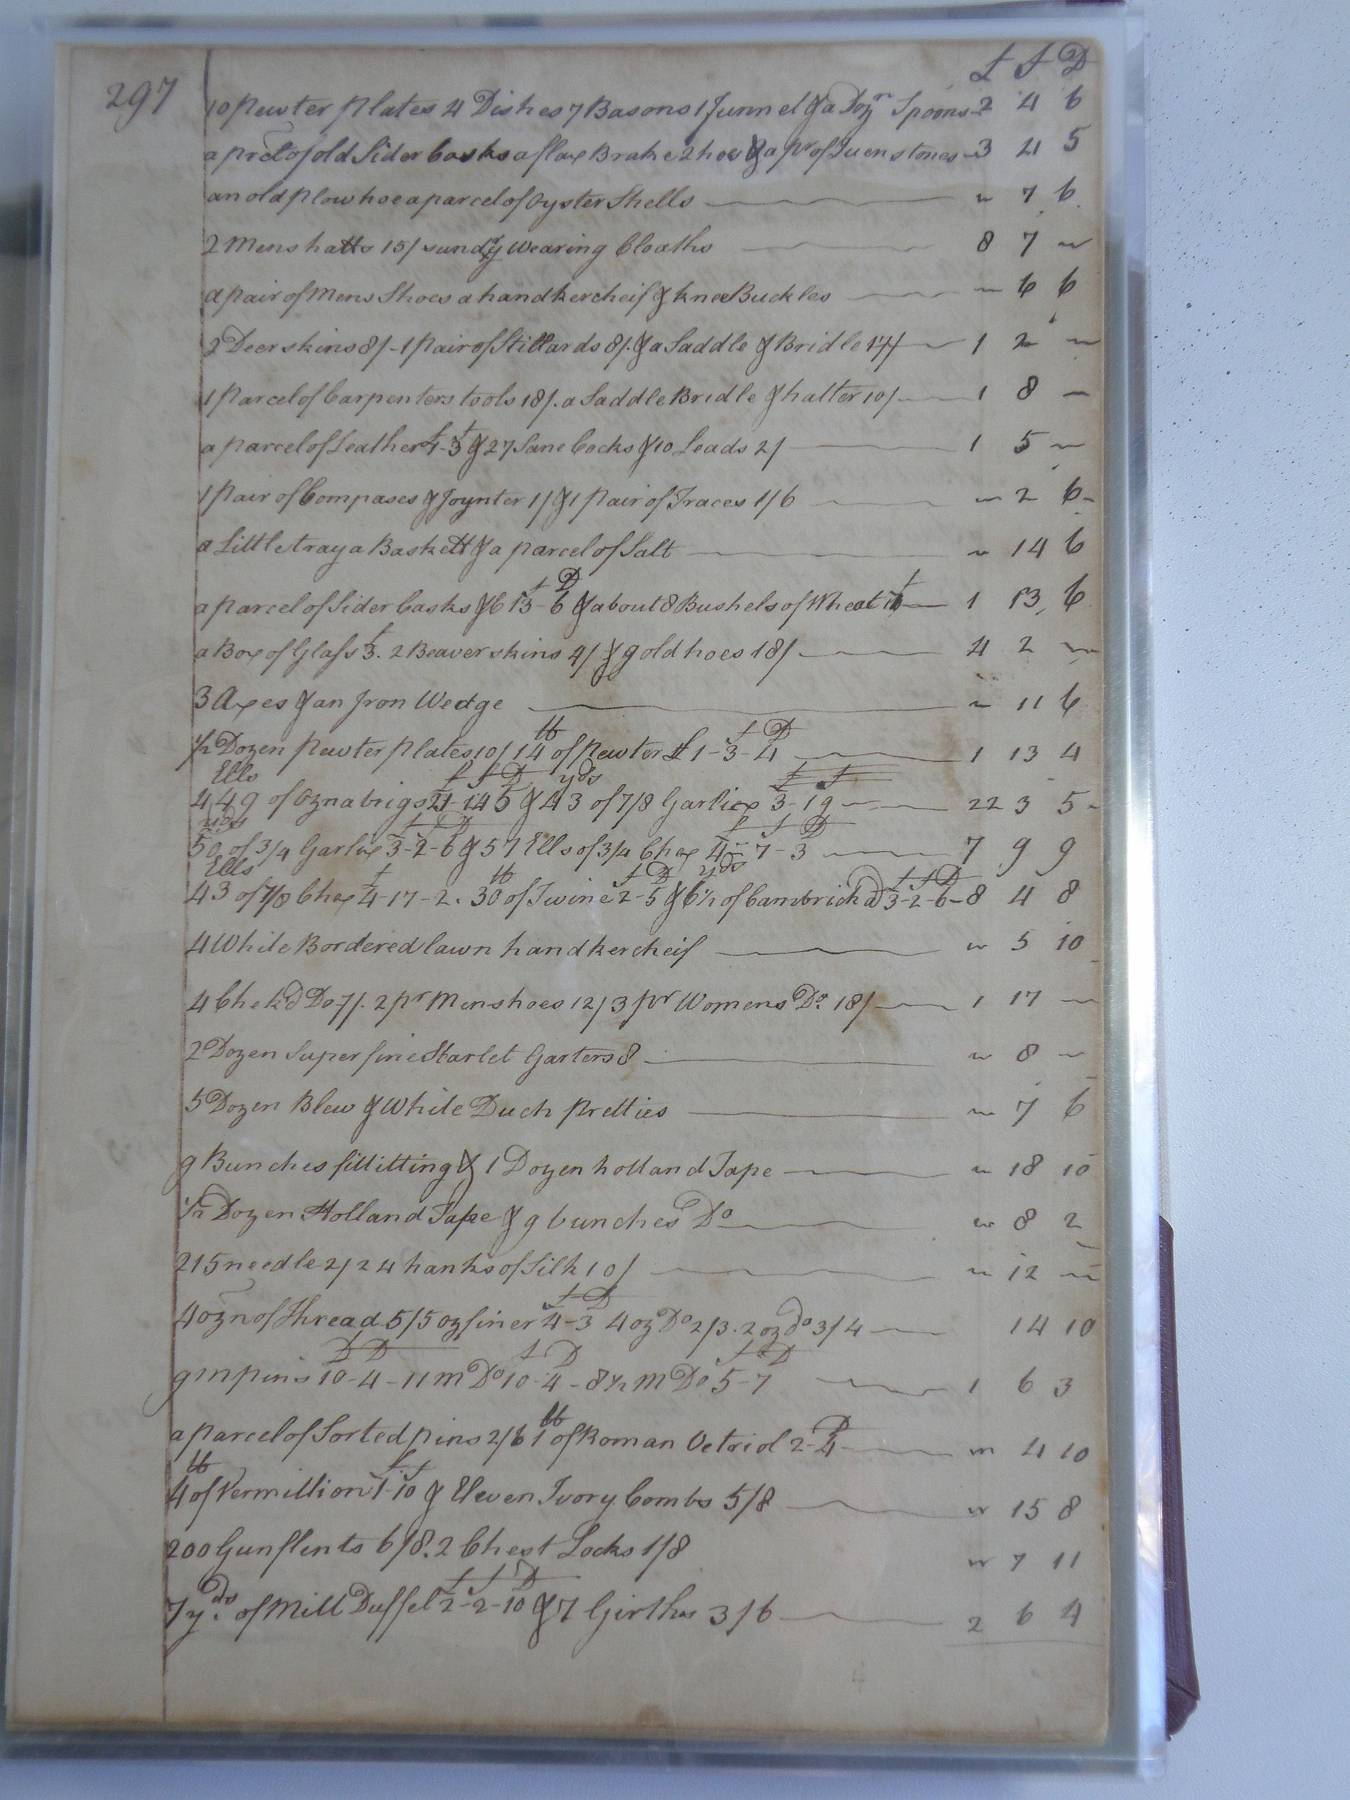 297
£ S D
10 pewter plates 4 Dishes 7 Basons 1 funnel & a Dozn Spoons - 2 4 6
a prcel of old Sider Casks a flax Brake 2 hoes & a pr of Iuen stones - 3 4 5
an old plow hoe a parcel of Oyster Shells - " 7 6
2 Mens hatts 15/ sundry Wearing Cloaths 8 7 "
a pair of Mens Shoes a handkercheif & knee Buckles " 6 6
2 Deer skins 8/ - 1 pair of Stillards 8/. & a Saddle & Bridle 14/ 1 2 "
1 parcel of Carpenters tools 18/. a Saddle Bridle & halter 10/ 1 8 "
a parcel of Leather £1-3 & 27 Cocks & 10 Leads 2/ 1 5 "
1 pair of Compases & Joynter 1/ & 1 pair of Traces 1/6 " 2 6
a Little tray a Baskett & a parcel of Salt " 14 6
a parcel of Sider Casks & 6 13-6 & about 8 Bushels of Wheat 1 13 6
a Box of Glass 3. 2 Beaver skins 4/ & 9 old hoes 18/ 4 2 "
3 Axes & an Iron Wedge " 11 6
1/2 Dozen pewter plates 10/ 14 lb of pewter £1-3-4 1 13 4
449 Ells of Oznabrigs 14 5 & 43 yds of 7/8 Garlix 3-19 22 3 5
50 yds of 3/4 Garlix 3-2-6 & 57 Ells of 3/4 Chex 4-7-3 7 9 9
43 Ells of 7/8 Chex 4-17-2. 30 lb of Twine 2-5 & 6 1/2 yds of Cambrick @ 3-2-6 8 4 8
4 White Bordered lawn handkercheif " 5 10
4 Chekd Do 7/. 2 pr Men shoes 12/ 3 pr Womens Do. 18/ 1 17 "
2 Dozen Superfine Starlet Garters 8 " 8 "
5 Dozen Blew & White Duch pretties " 7 6
9 Bunches fillitting & 1 Dozen holland Tape " 18 10
1/2 Dozen Holland Tape & 9 bunches Do " 8 2
215 needle 2/ 24 hanks of Silk 10/ " 12 "
4 ozn of Thread 5/ 5 oz finer 4-3 4 oz Do 2/3. 2 oz do 3/4 14 10
9 m pins 10-4 - 11 m Do 10-4 - 8 1/2 m Do 5-7 1 6 3
a parcel of Sorted pins 2/6 1 lb of Roman Vetriol 2-4 " 4 10
4 lb of Vermillion 1-10 & Eleven Ivory Combs 5/8 " 15 8
200 Gunflents 6/8. 2 Chest Locks 1/8 " 7 11
7 yds. of Mill Duffel 2-2-10 & 7 Girths 3/6 2 6 4